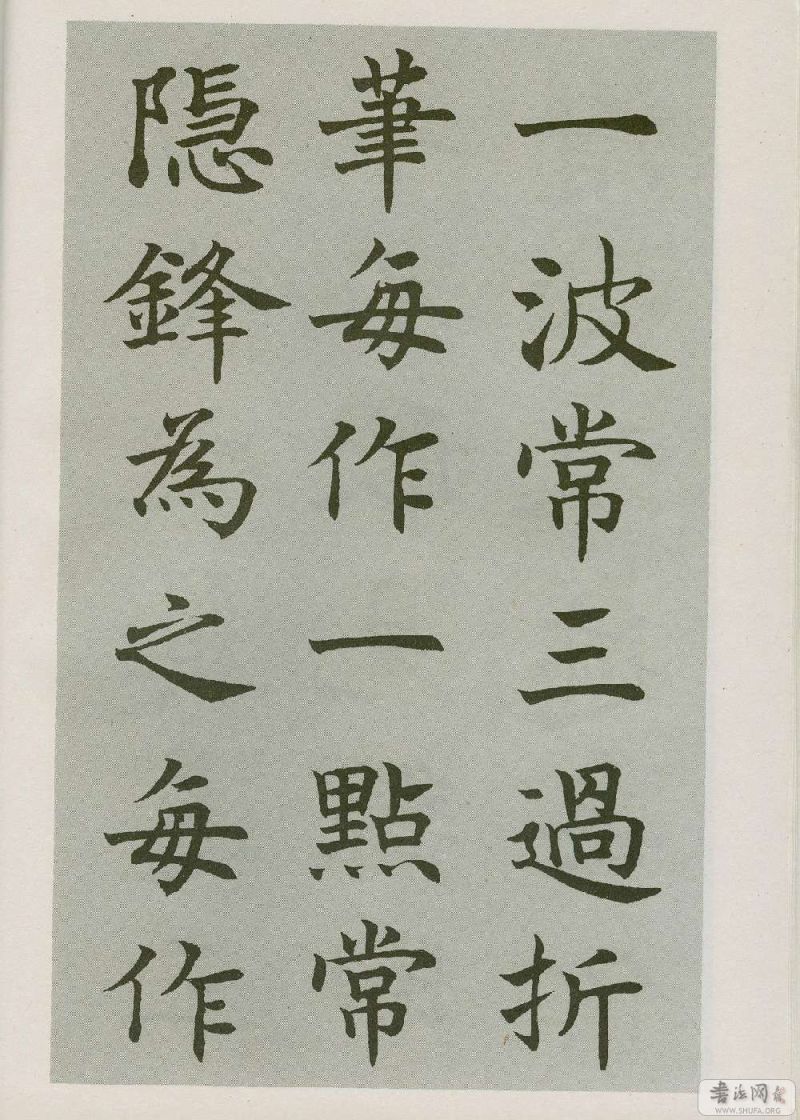 一波常三過折
筆每作一點常
隐鋒為之每作
書法网
WWW.SHUFA.ORG